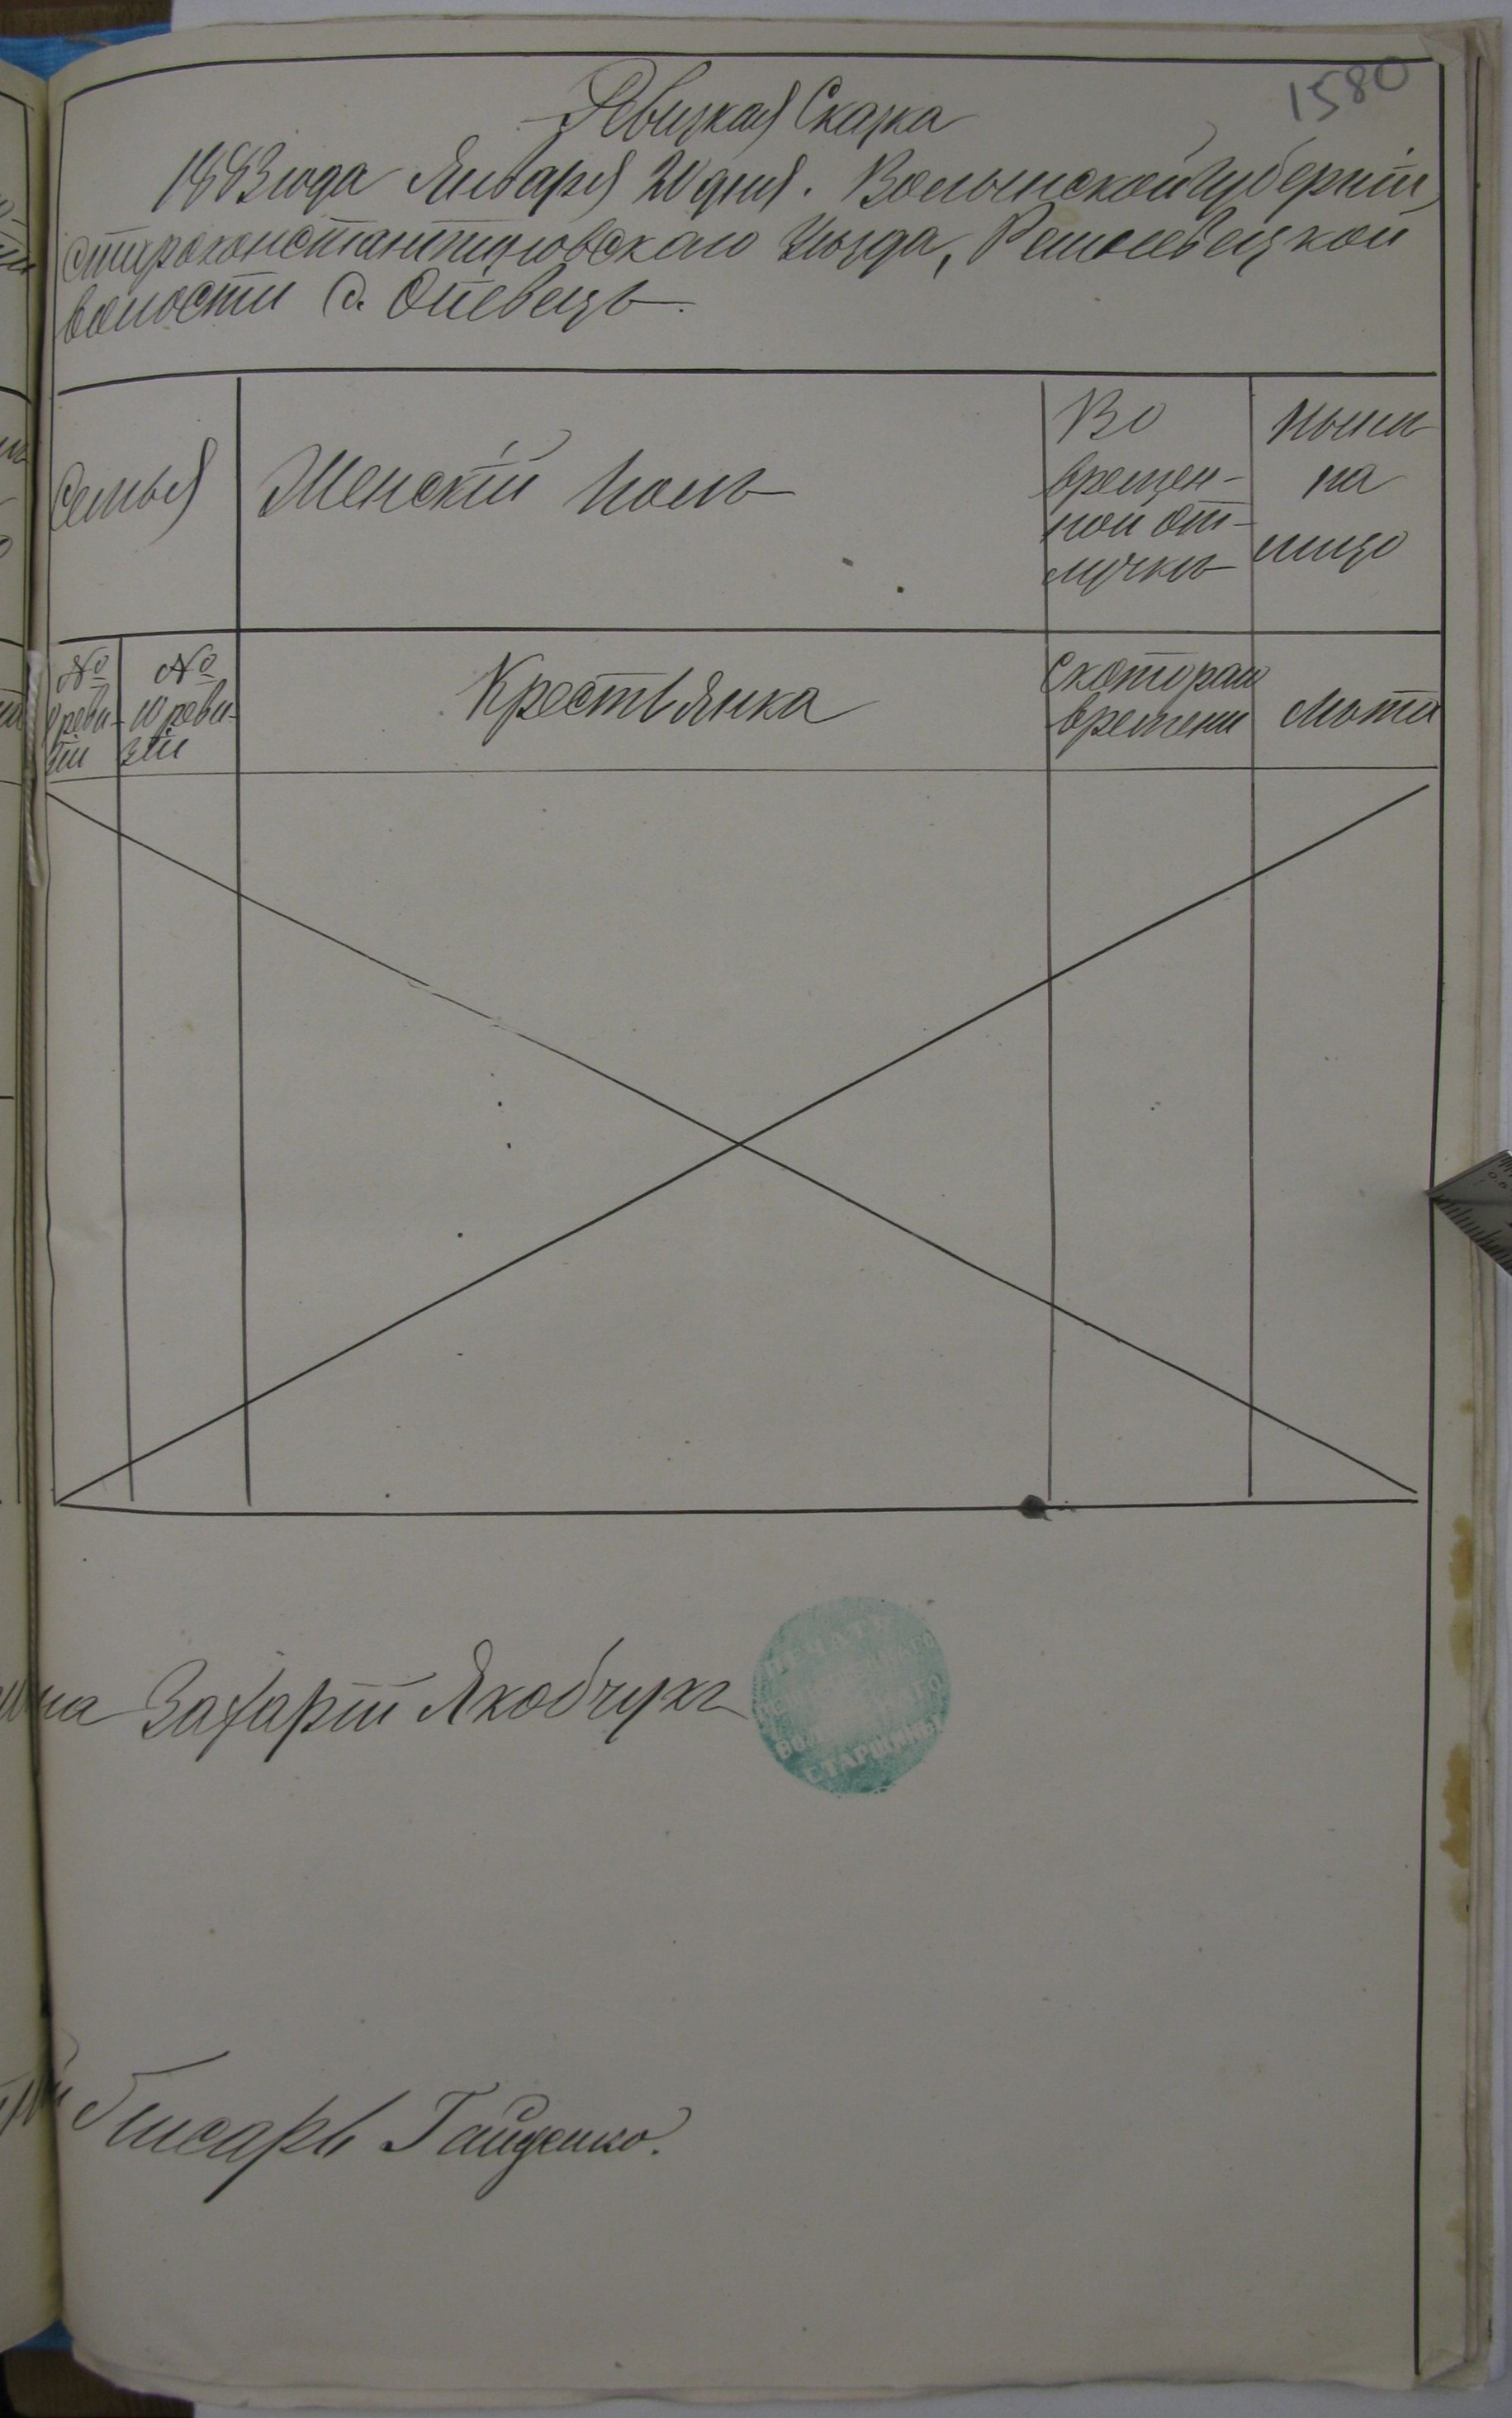 1580
Ревизкая Сказка
1883 года Января 20 дня. Волынской губерніи,
староконстантиновскаго Уѣзда,
волости С.
Семья
Женскій полъ
Во
времен-
ной от-
лучкѣ
Нынѣ
на
лицо
№
реви-
зіи
№
10 реви-
зіи
Крестьянка
Скотораго
времени
Лѣта
на Захарій Якобчукъ
ПЕЧАТЬ
СТАРШИНЫ
Писарь Гайденко.